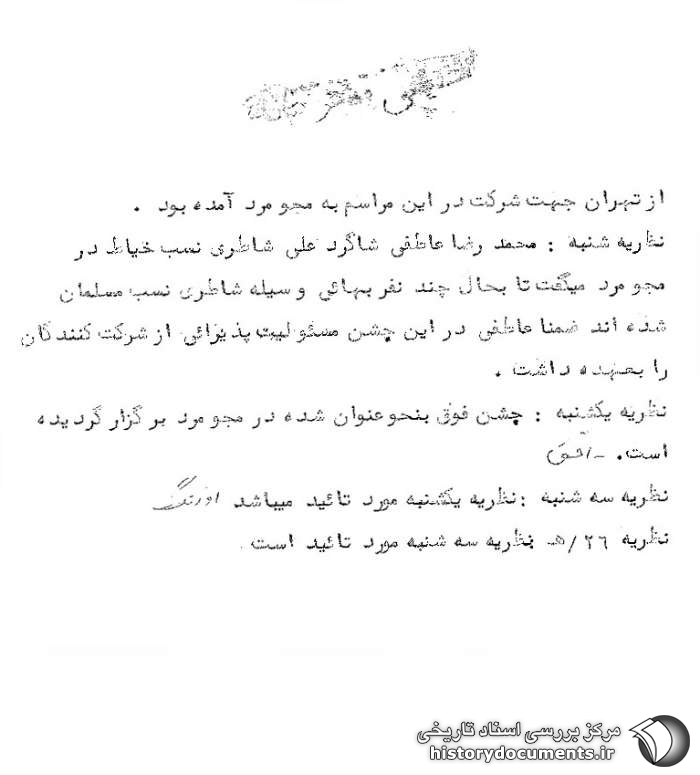 از تهران جهت شرکت در این مراسم به مجومرد آمده بود .
نظریه شنبه : محمد رضا عاطفی شاگرد علی شاطری نسب خیاط در
مجومرد میگفت تا بحال چند نفر بهائی وسیله شاطری نسب مسلمان
شده اند ضمنا عاطفی در این جشن مسئولیت پذیرائی از شرکت کنندگان
را بعهده داشت .
نظریه یکشنبه : چشن فوق بنحو عنوان شده در مجومرد برگزار گردیده
است. _ افق
نظریه سه شنبه : نظریه یکشنبه مورد تائید میباشد اورنگ
نظریه ۲۶/هـ نظریه سه شنبه مورد تائید است .
مرکز بررسی اسناد تاریخی
historydocuments.ir